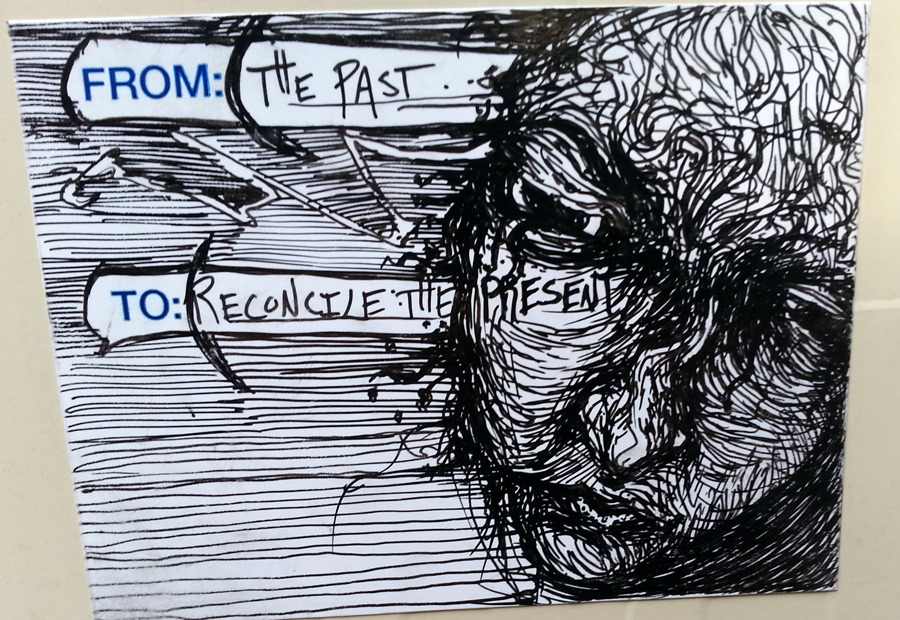 FROM: THE PAST...
TO: RECONCILE THE PRESENT